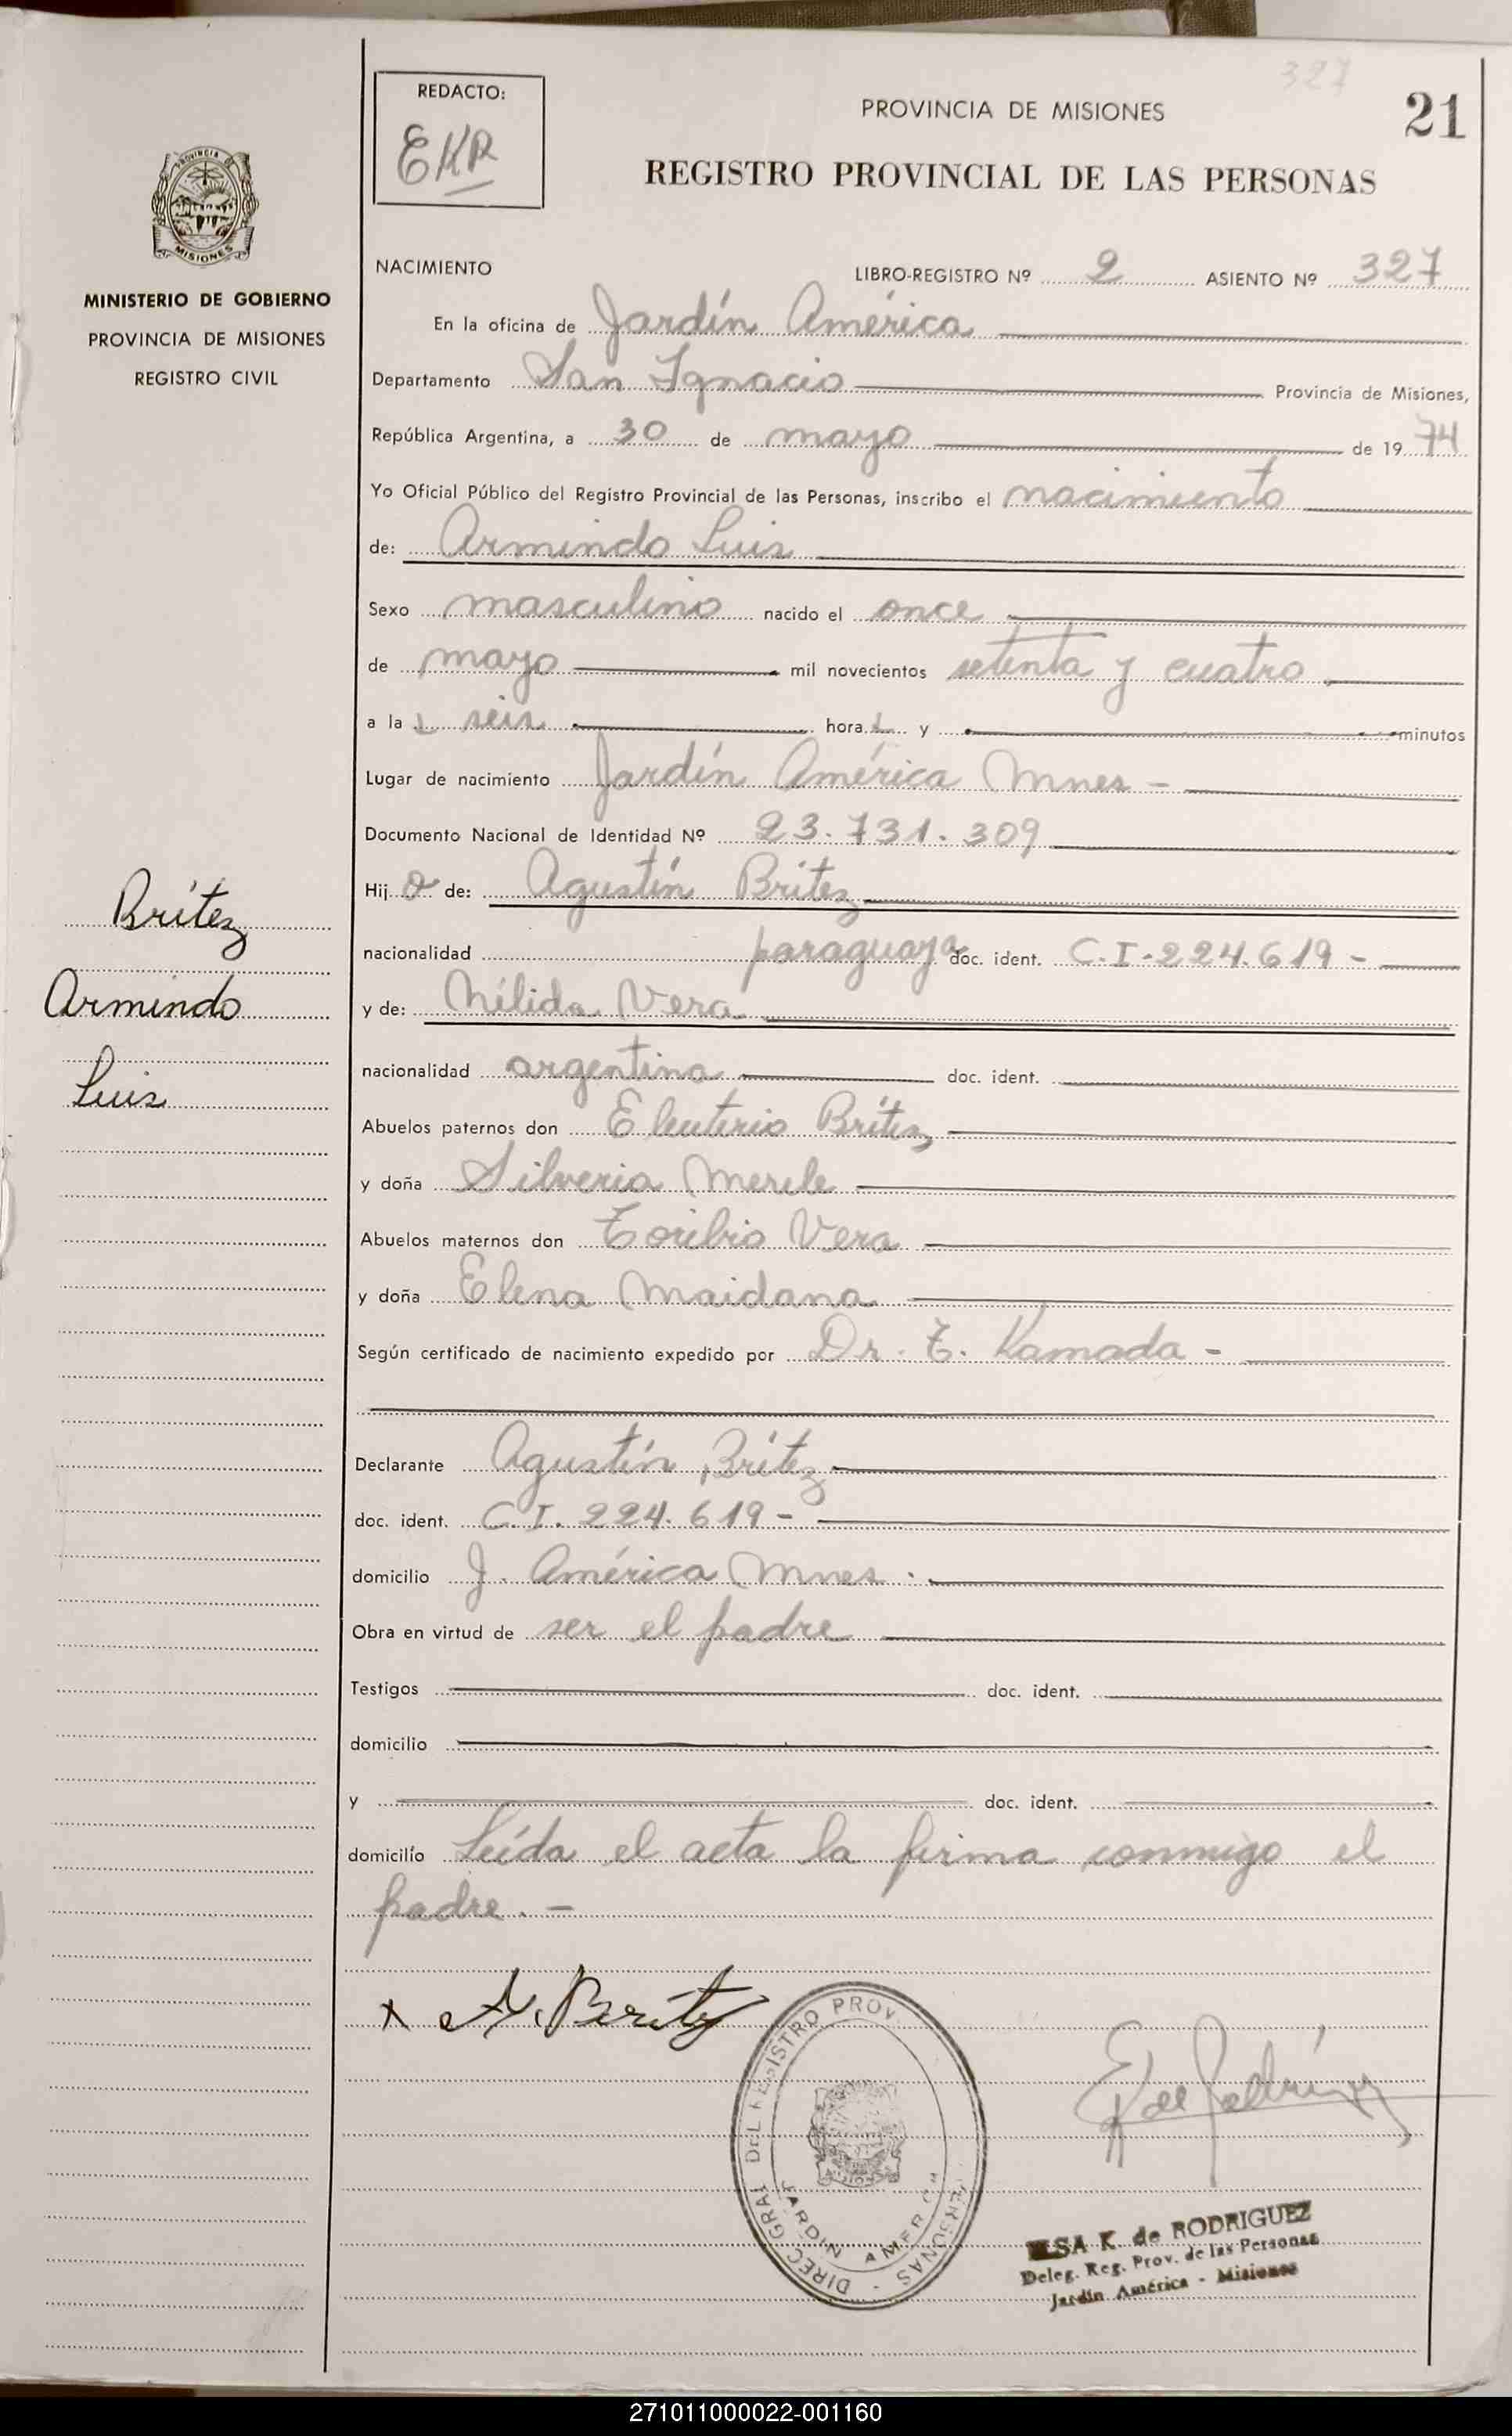 327
21
REDACTO:
EKR
PROVINCIA DE MISIONES
REGISTRO PROVINCIAL DE LAS PERSONAS
PROVINCIA DE
MISIONES
MINISTERIO DE GOBIERNO
PROVINCIA DE MISIONES
REGISTRO CIVIL
NACIMIENTO LIBRO-REGISTRO Nº 2 ASIENTO Nº 327
En la oficina de Jardín América
Departamento San Ignacio Provincia de Misiones,
República Argentina, a 30 de mayo de 19 74
Yo Oficial Público del Registro Provincial de las Personas, inscribo el nacimiento
de: Armindo Luis
Sexo masculino nacido el once
de mayo mil novecientos setenta y cuatro
a la s seis hora s y minutos
Lugar de nacimiento Jardín América Mnes -
Documento Nacional de Identidad Nº 23.731.309
Hij o de: Agustín Brítez
nacionalidad paraguaya doc. ident. C.I-224.619 -
y de: Nélida Vera
nacionalidad argentina doc. ident.
Abuelos paternos don Eleuterio Brítez
y doña Silveria Merele
Abuelos maternos don Toribio Vera
y doña Elena Maidana
Según certificado de nacimiento expedido por Dr. T. Kamada -
Declarante Agustín Brítez
doc. ident. C.I. 224.619 -
domicilio J. América Mnes.
Obra en virtud de ser el padre
Testigos doc. ident.
domicilio
y doc. ident.
domicilio Leída el acta la firma conmigo el
padre. -
Brítez
Armindo
Luis
x A. Brítez
DIREC GRAL DEL REGISTRO PROV. PERSONAS -
JARDIN AMERICA
ELSA K. de RODRIGUEZ
Deleg. Reg. Prov. de las Personas
Jardín América - Misiones
271011000022-001160